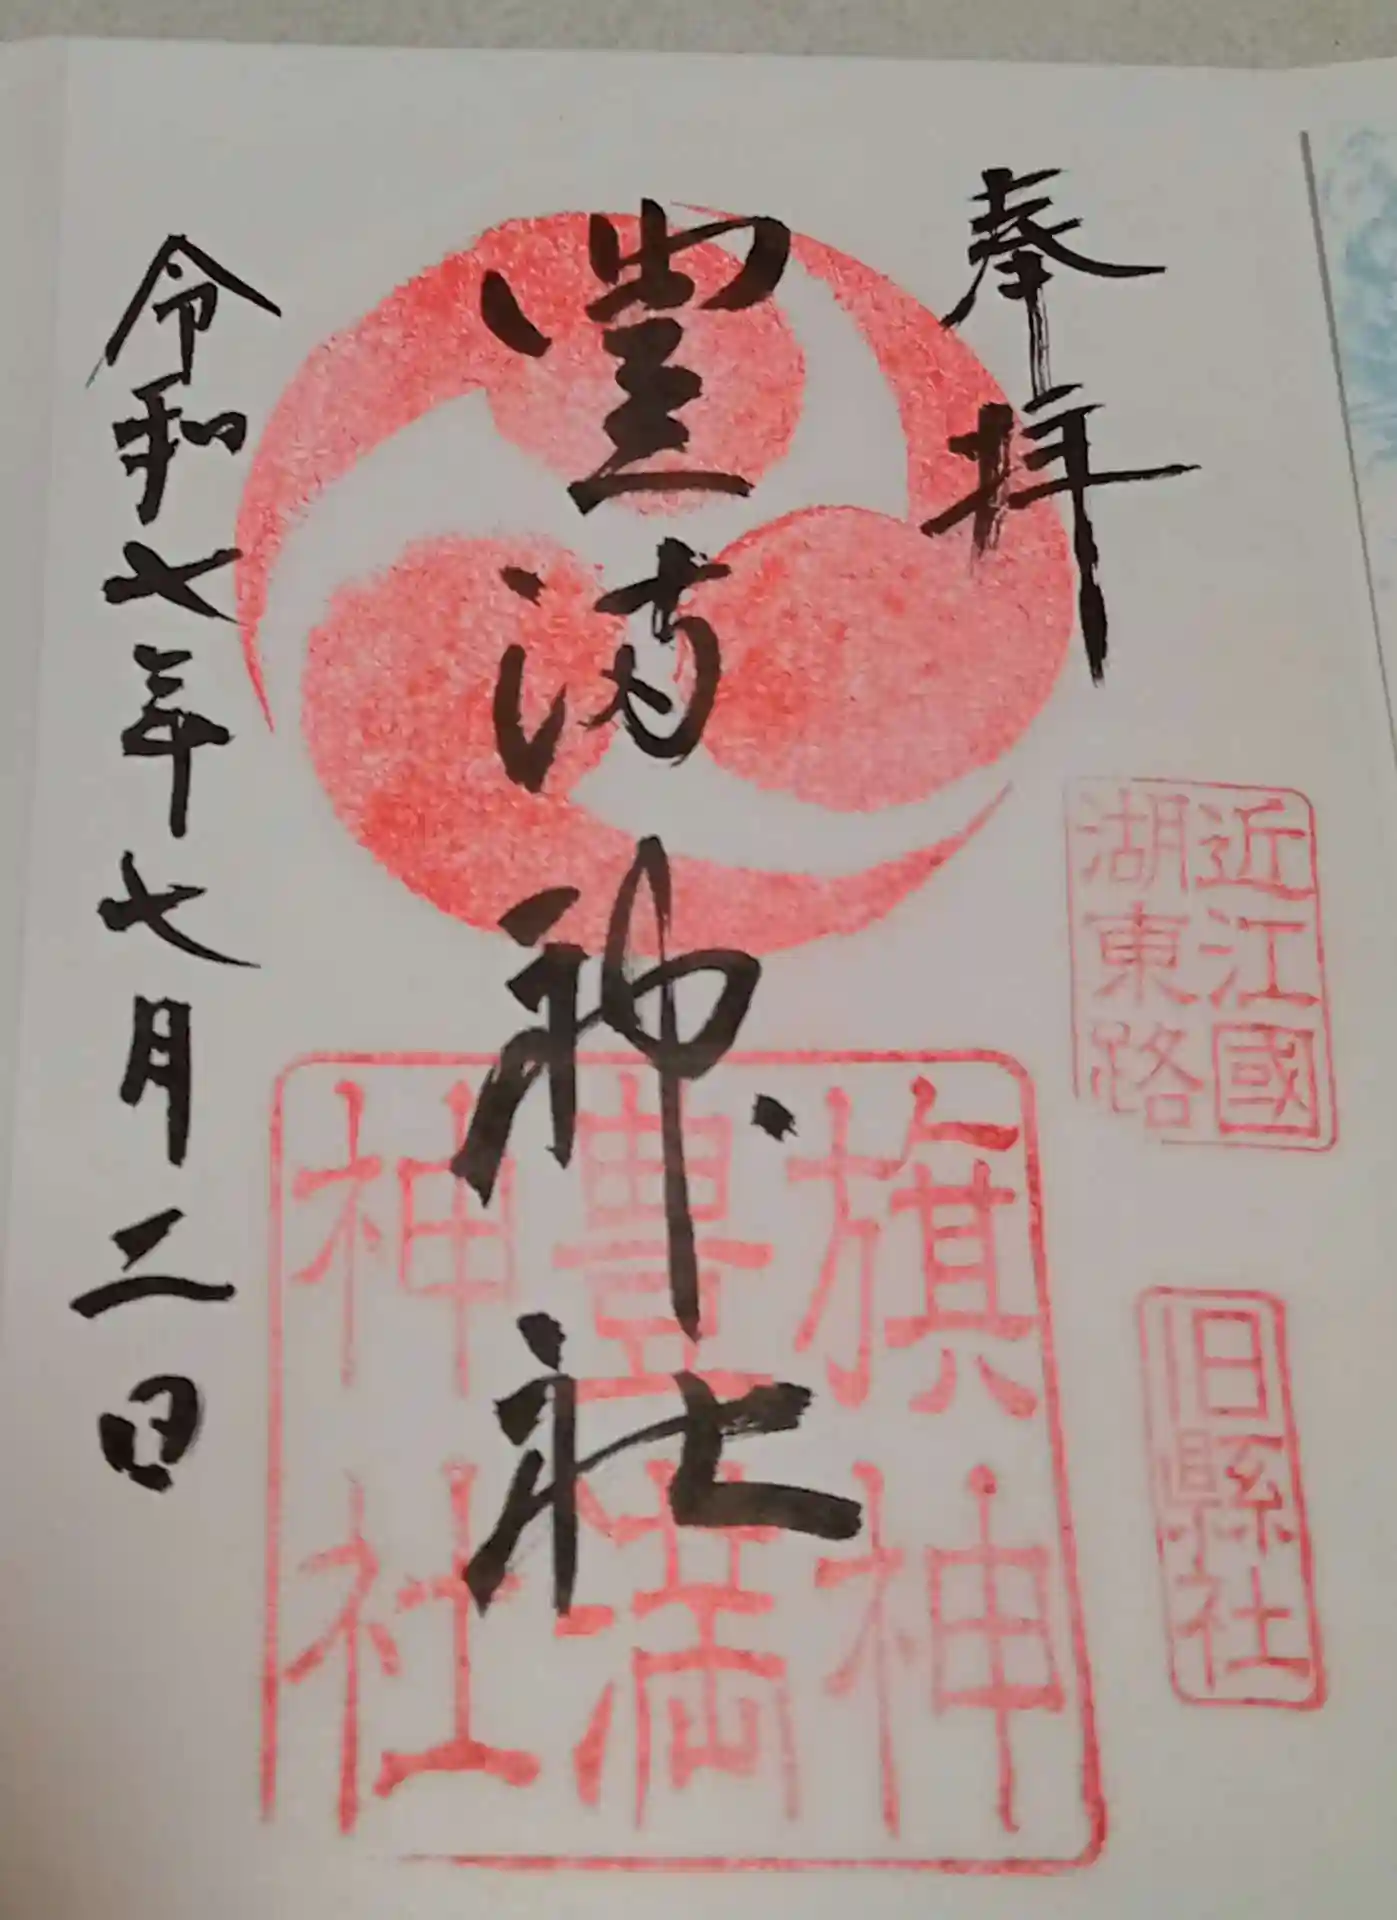 奉拝
近江國
湖東路
旧縣社
豊満神社
旗神
豊満
神社
令和七年七月二日